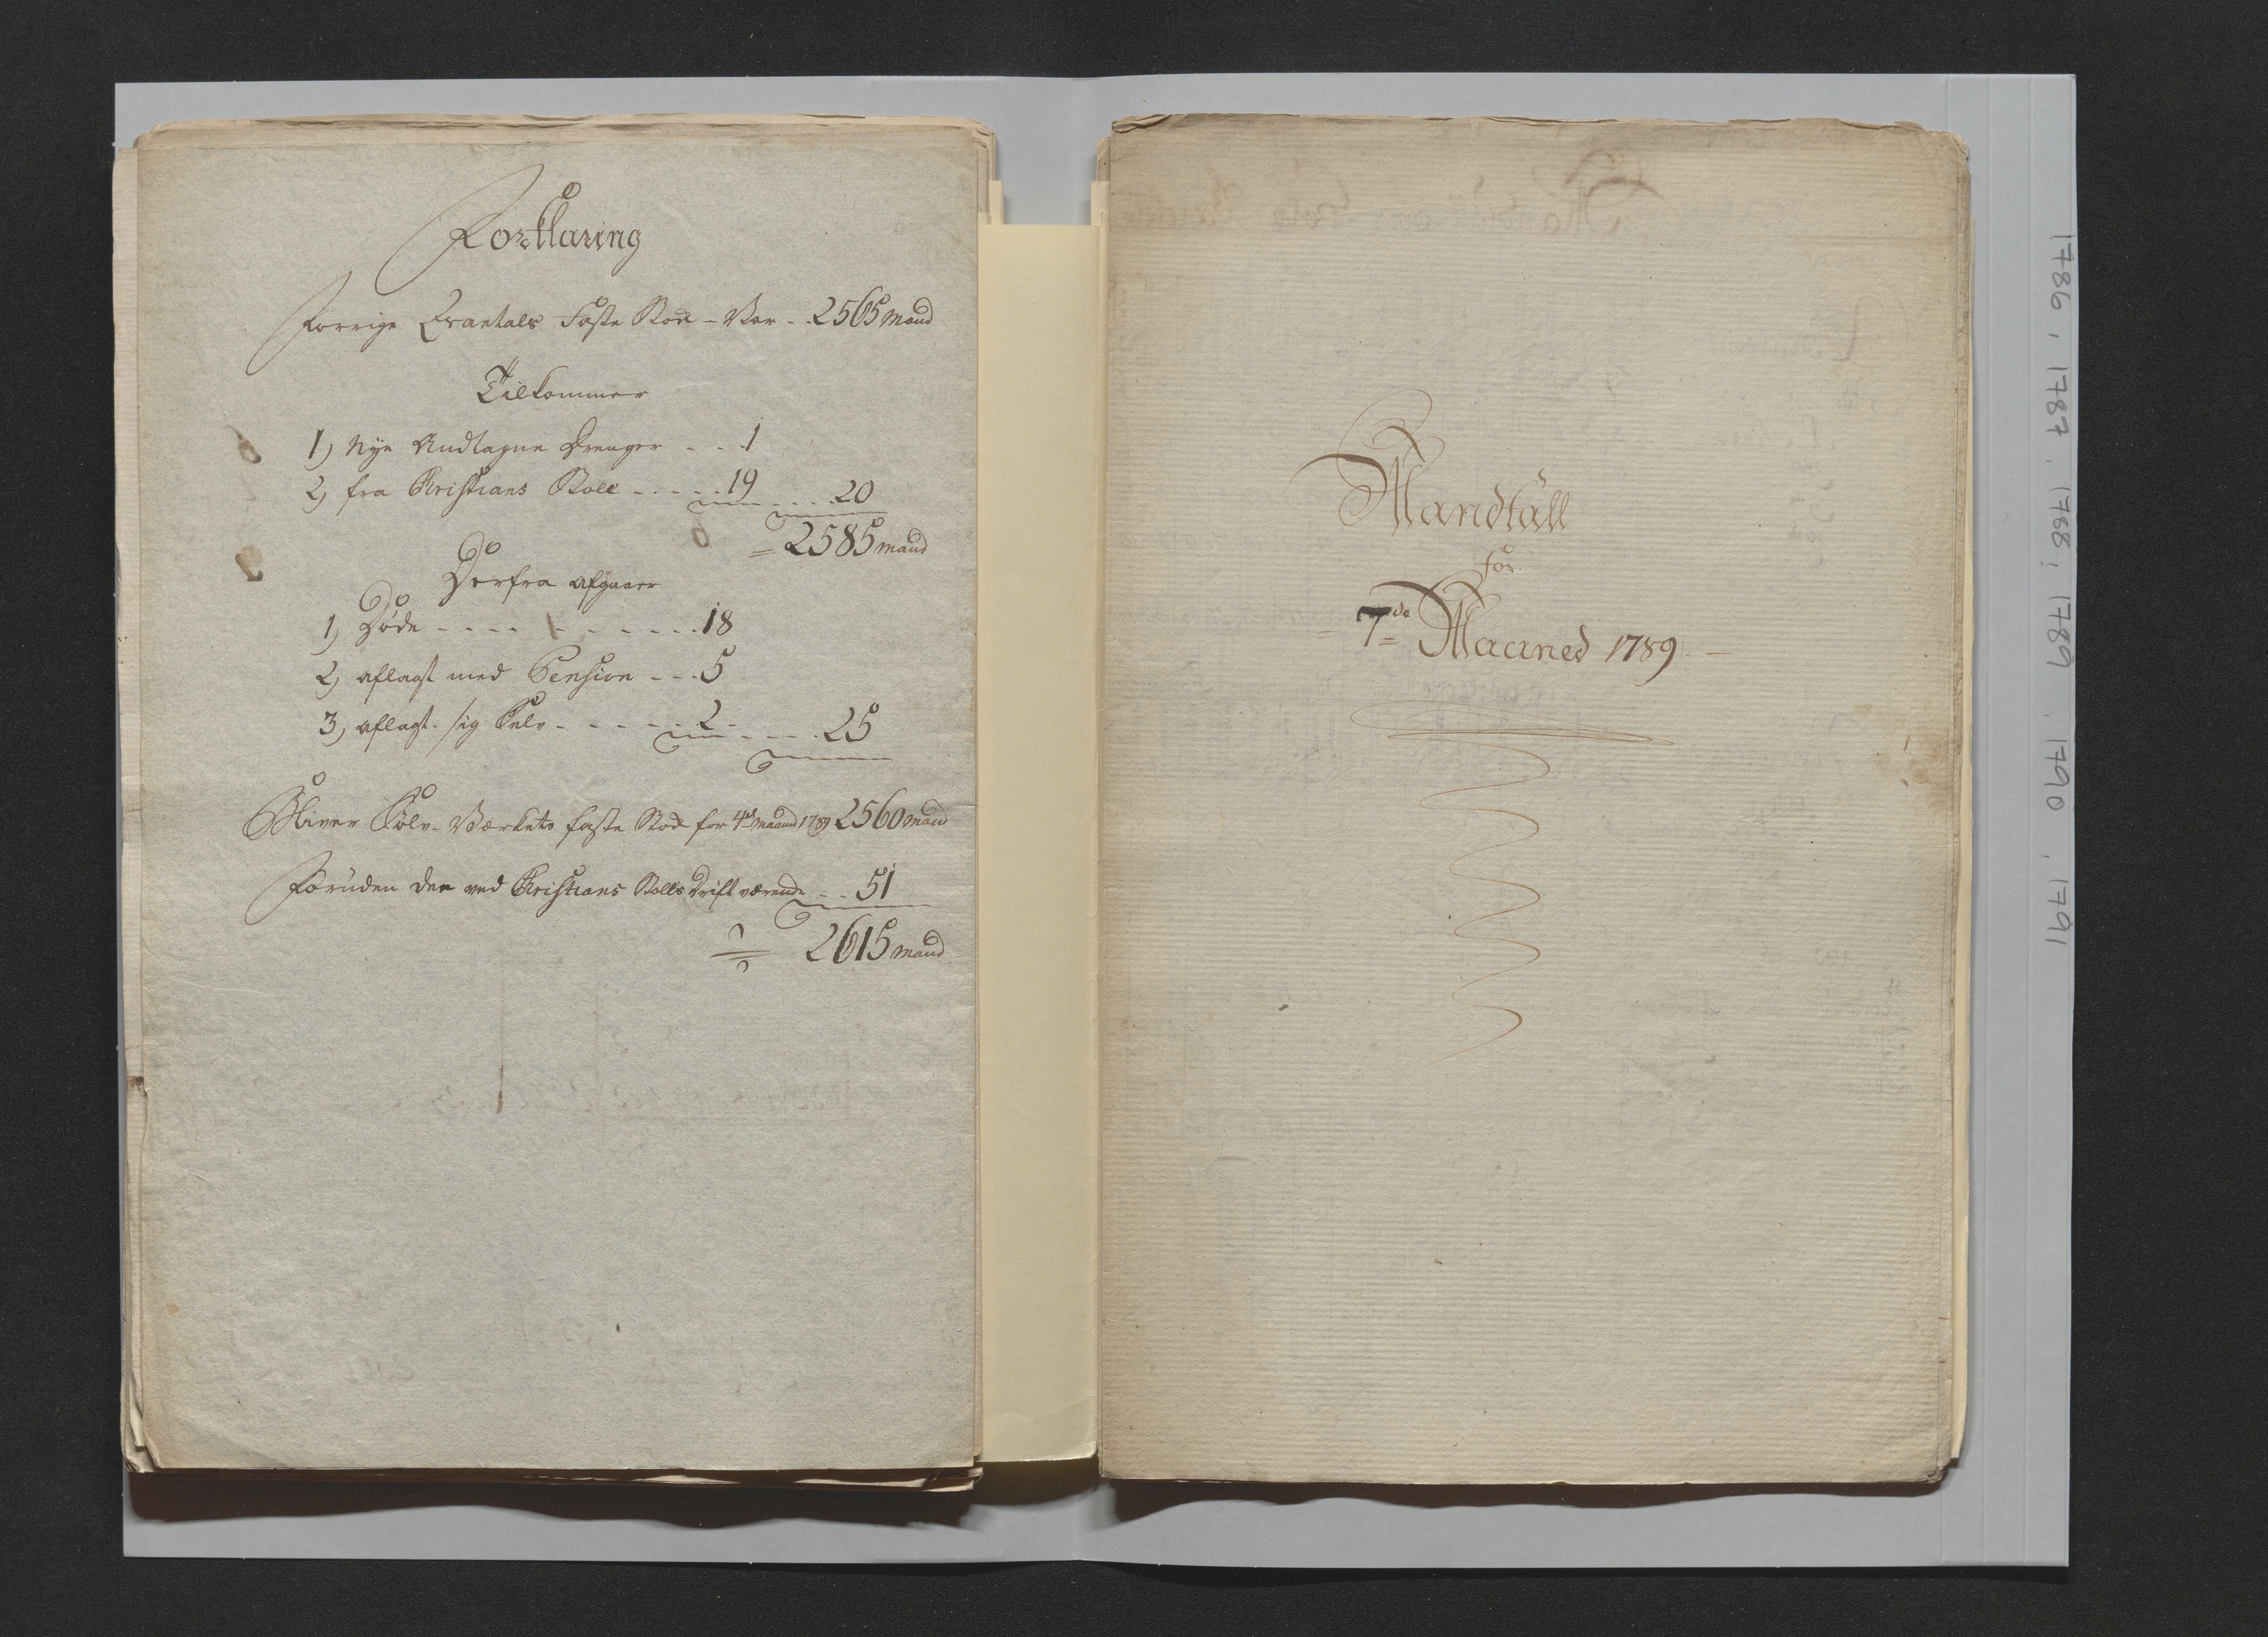 Forklaring
Forrige Qvartals Faste Stok - Var - 2565 mand
Tilkommer
1) Nye Andtagne Drenger - - 1
2) fra Christians Stoll - - - - 19 - - - 20
= 2585 mand
Derfra afgaaer
1) Døde - - - - - - - - - - 18
2) aflagt med Pension - - - 5
3) aflagt sig Selv - - - - - 2 - - - - 25
Bliver Sølv-Værkets faste Stok for 4de maaned 1789 2560 mand
Foruden de ved Christians Stolls Drift værende - - 51
2615 mand
Mandtall
for
7de Maaned 1789
1786, 1787. 1788, 1789. 1790. 1791